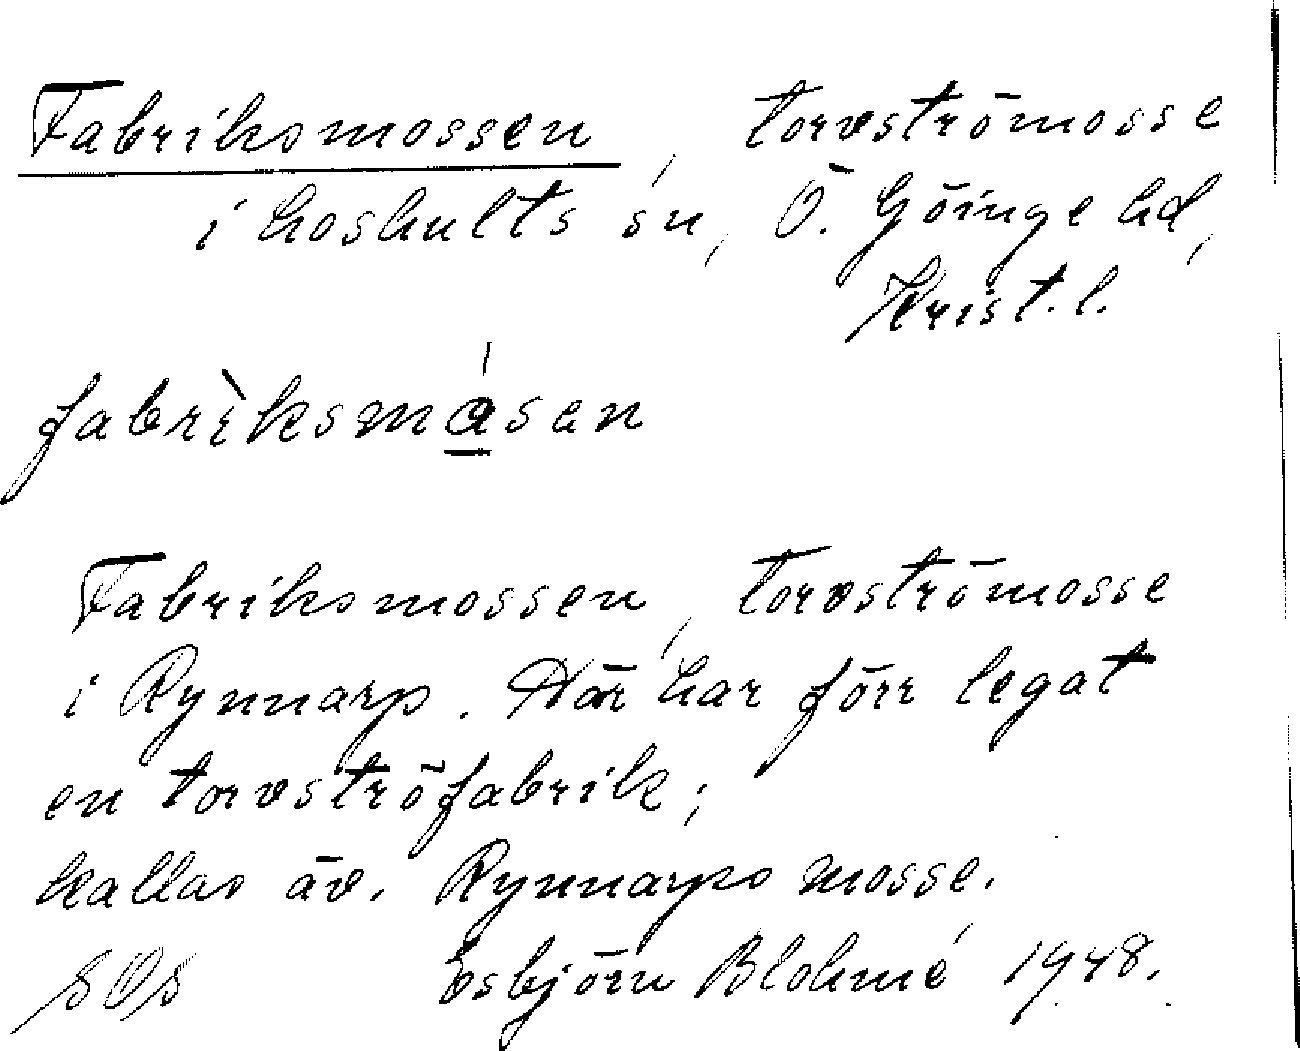 Fabriksmossen, torvströmosse
i Loshults sn, Ö. Göinge hd,
Krist. l.
fabrìksmåsen
Fabriksmossen, torvströmosse
i Rynnarp. Här har förr legat
en torvströfabrik;
kallas äv. Rynnarps mosse.
Esbjörn Blohmé 1948.